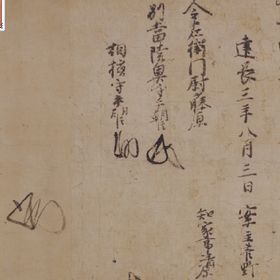 建長三年八月三日　案主菅野
知家事清原
令左衛門尉藤原
別當陸奥守平朝臣
相模守平朝臣